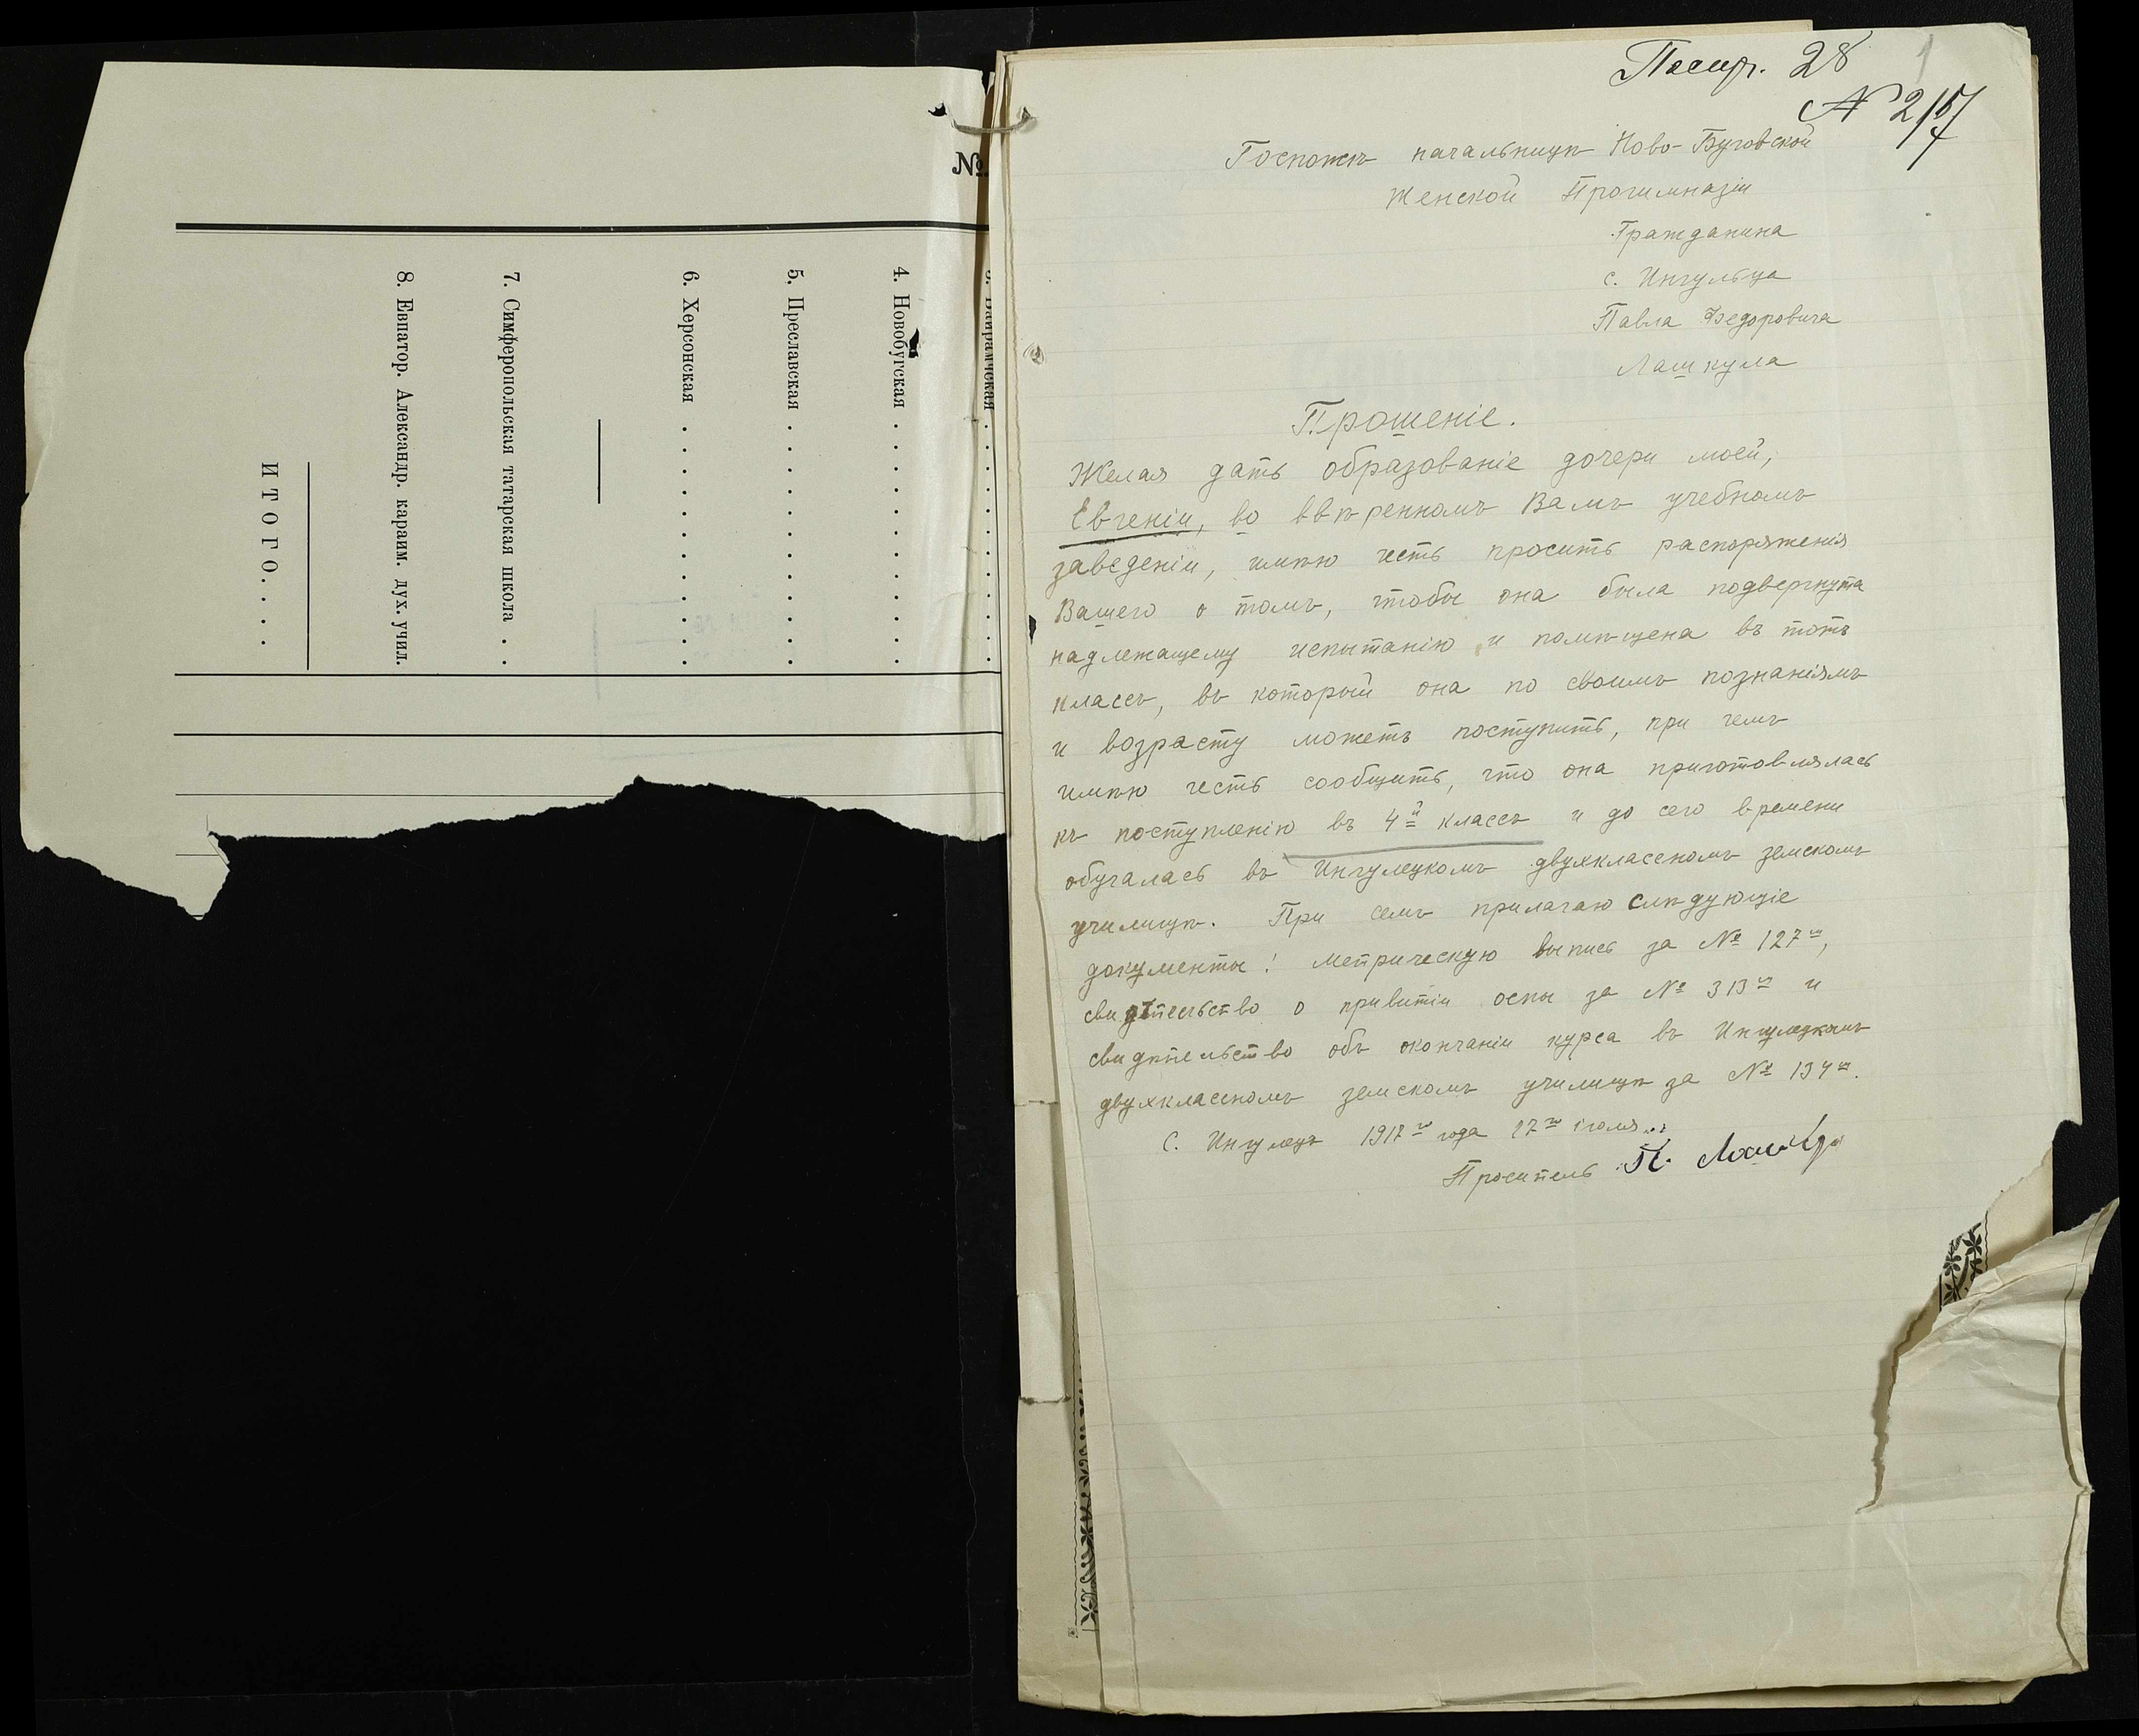 №
3. Байрамчская . . . . . .
4. Новобугская . . . . . . . .
5. Преславская . . . . . . . .
6. Херсонская . . . . . . . .
7. Симферопольская татарская школа . .
8. Евпатор. Александр. караим. дух. учил.
ИТОГО. . . .
28
1
№
Госпожѣ начальницѣ Ново-Буговской
Женской Прогимназіи
Гражданина
с. Ингульца
Павла Федоровича
Лашкула
Прошеніе.
Желая дать образованіе дочери моей,
Евгеніи, во ввѣренномъ Вамъ учебномъ
заведеніи, имѣю честь просить распоряженія
Вашего о томъ, чтобы она была подвергнута
надлежащему испытанію и помѣщена въ тотъ
классъ, въ который она по своимъ познаніямъ
и возрасту можетъ поступить, при чемъ
имѣю честь сообщить, что она приготовлялась
къ поступленію въ 4й классъ и до сего времени
обучалась въ Ингулецкомъ двухклассномъ земскомъ
училищѣ. При семъ прилагаю слѣдующіе
документы: метрическую выпись за № 127мъ,
свидѣтельство о привитіи оспы за № 313мъ и
свидѣтельство объ окончаніи курса въ Ингулецкомъ
двухклассномъ земскомъ училищѣ за № 134мъ.
С. Ингулецъ 1917го года 27го іюля
Проситель П.